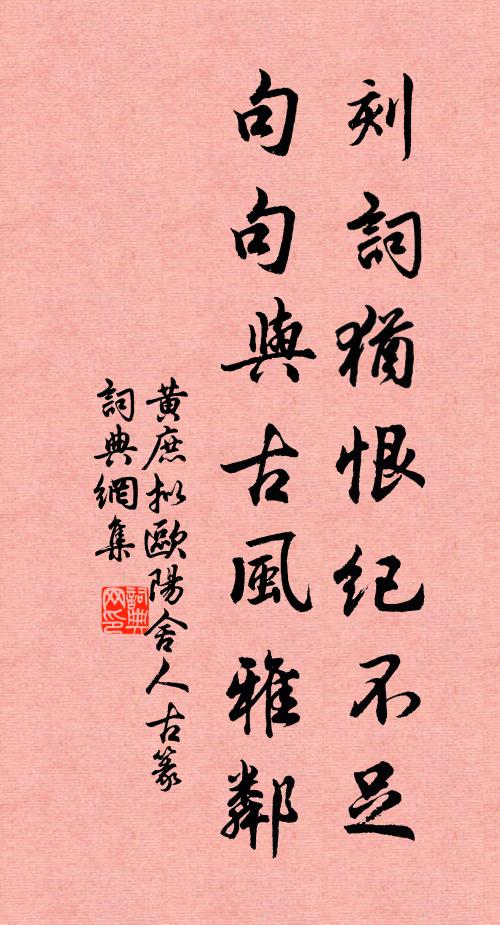 刻詞猶恨紀不足
句句與古風雅鄰
黃庶拟歐陽舍人古篆
詞典網集
詞典
网印